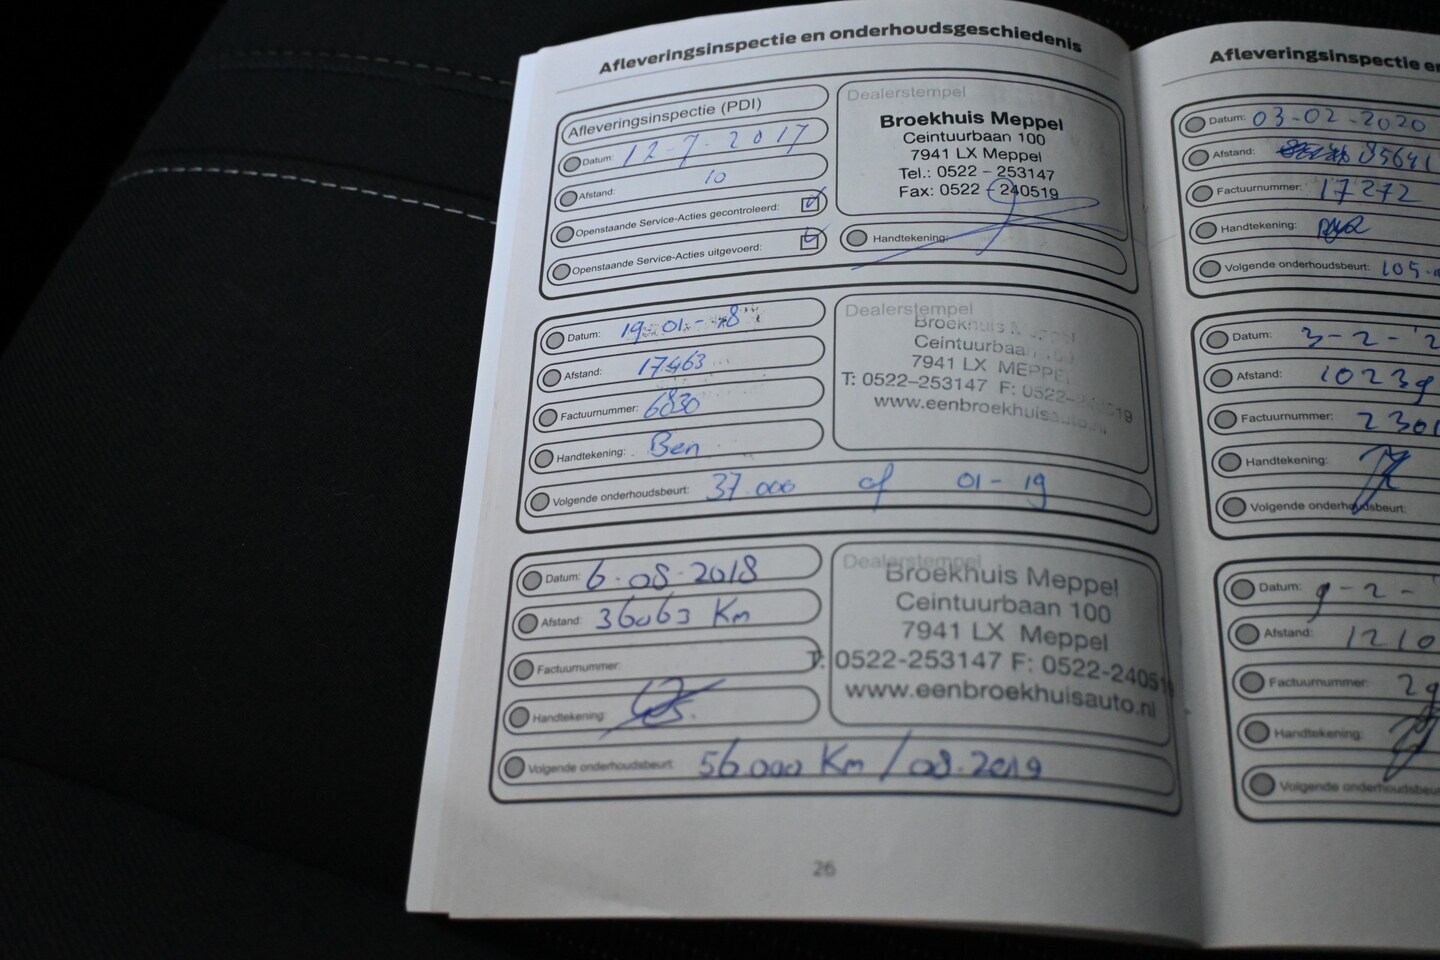 Afleveringsinspectie en onderhoudsgeschiedenis
Afleveringsinspectie (PDI)
Datum: 12-7-2017
Afstand: 10
Openstaande Service-Acties gecontroleerd:
Openstaande Service-Acties uitgevoerd:
Dealerstempel
Broekhuis Meppel
Ceintuurbaan 100
7941 LX Meppel
Tel.: 0522 - 253147
Fax: 0522 - 240519
Handtekening:
Datum: 19-01-18
Afstand: 17463
Factuurnummer: 6830
Handtekening: Ben
Volgende onderhoudsbeurt: 37.000 of 01-19
Dealerstempel
Broekhuis
Ceintuurbaan
7941 LX MEPPEL
T: 0522-253147 F: 0522-
www.eenbroekhuisauto.nl
Datum: 6-08-2018
Afstand: 36063 Km
Factuurnummer:
Handtekening:
Volgende onderhoudsbeurt: 56.000 Km / 08.2019
Dealerstempel
Broekhuis Meppel
Ceintuurbaan 100
7941 LX Meppel
T: 0522-253147 F: 0522-240519
www.eenbroekhuisauto.nl
26
Afleveringsinspectie
Datum: 03-02-2020
Afstand: 85641
Factuurnummer: 17272
Handtekening:
Volgende onderhoudsbeurt: 105-
Datum: 3-2-'2
Afstand: 10239
Factuurnummer: 2301
Handtekening:
Volgende onderhoudsbeurt:
Datum: 9-2-
Afstand: 1210
Factuurnummer: 29
Handtekening:
Volgende onderhoudsbeurt